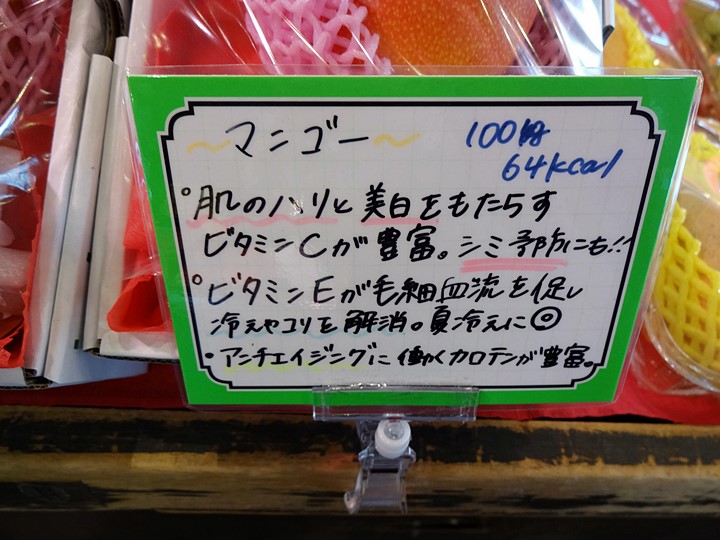 ～マンゴー～
100g
64kcal
°肌のハリと美白をもたらす
ビタミンCが豊富。シミ予防にも!!
°ビタミンEが毛細血流を促し
冷えやコリを解消。夏冷えに◎
・アンチエイジングに働くカロテンが豊富。